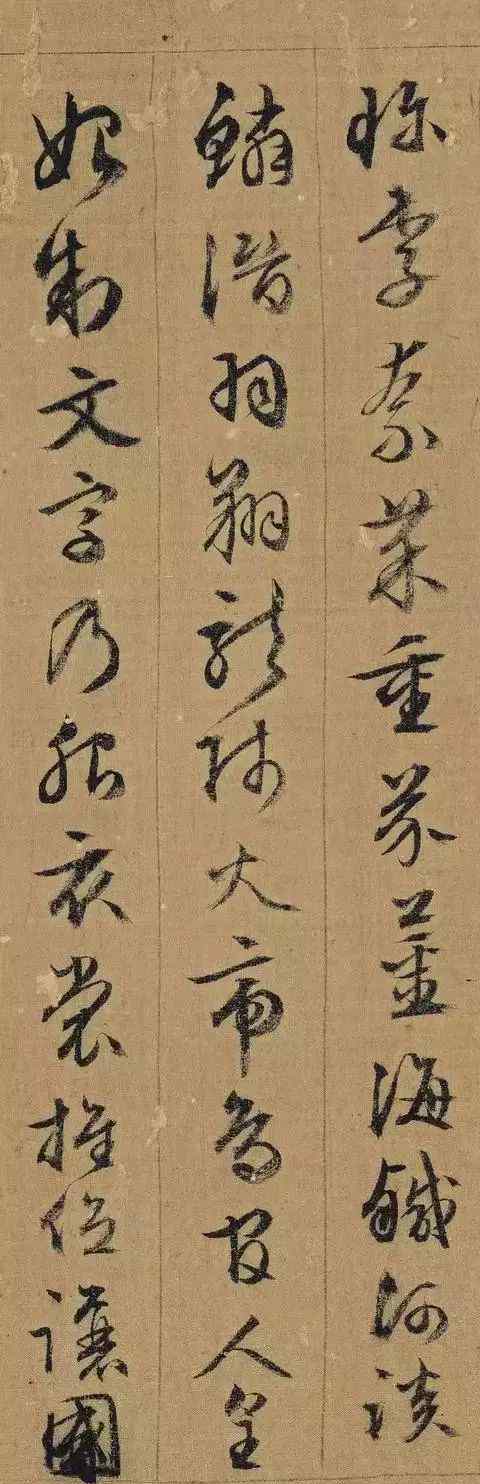 珎李柰菜重芥薑海醎河淡
鱗潛羽翔龍師火帝鳥官人皇
始制文字乃服衣裳推位讓國